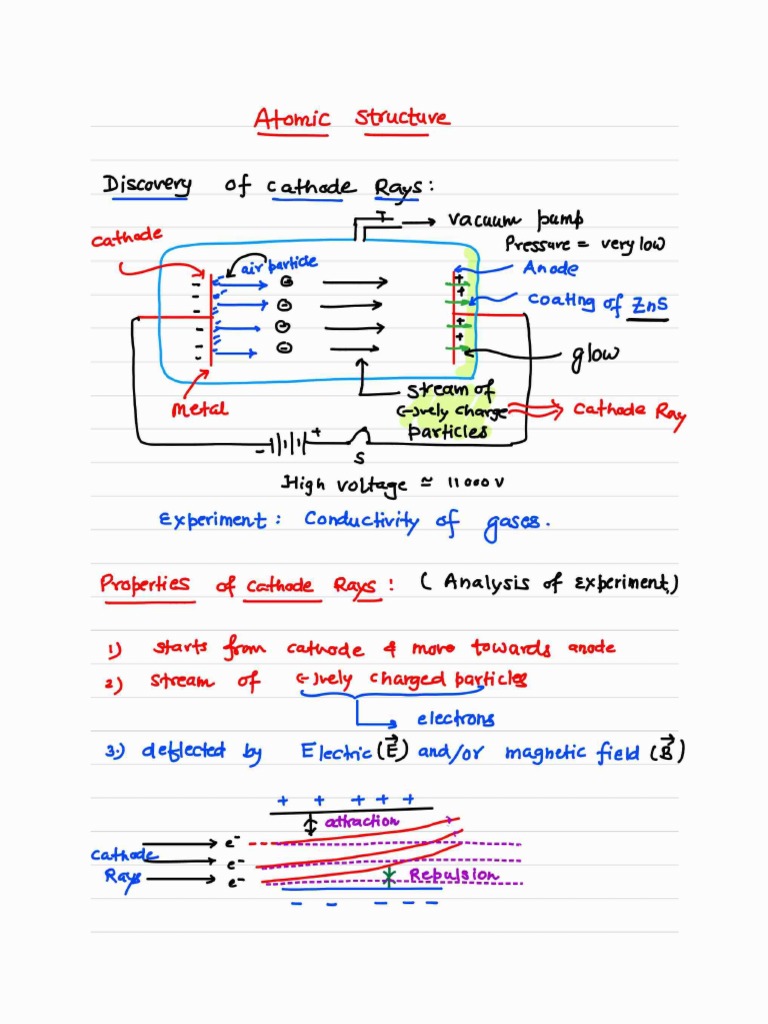 Atomic Structure
Discovery of cathode Rays:
T → vacuum pump
Pressure = very low
cathode
air particle
Anode
coating of ZnS
glow
Metal
stream of
(-)vely charge
particles
Cathode Ray
- +
S
High voltage ≈ 11000 V
Experiment: Conductivity of gases.
Properties of cathode Rays: (Analysis of experiment)
1) starts from cathode & move towards anode
2) stream of (-)vely charged particles
electrons
3.) deflected by Electric (E⃗) and/or magnetic field (B⃗)
+ + + + +
attraction
cathode Rays
e⁻
e⁻
e⁻
Repulsion
- - - - -